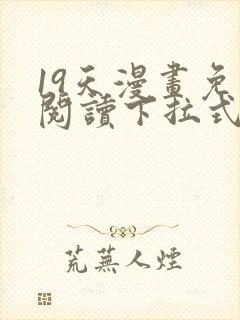 19天漫畫免
閱讀下拉式
荒蕪人煙